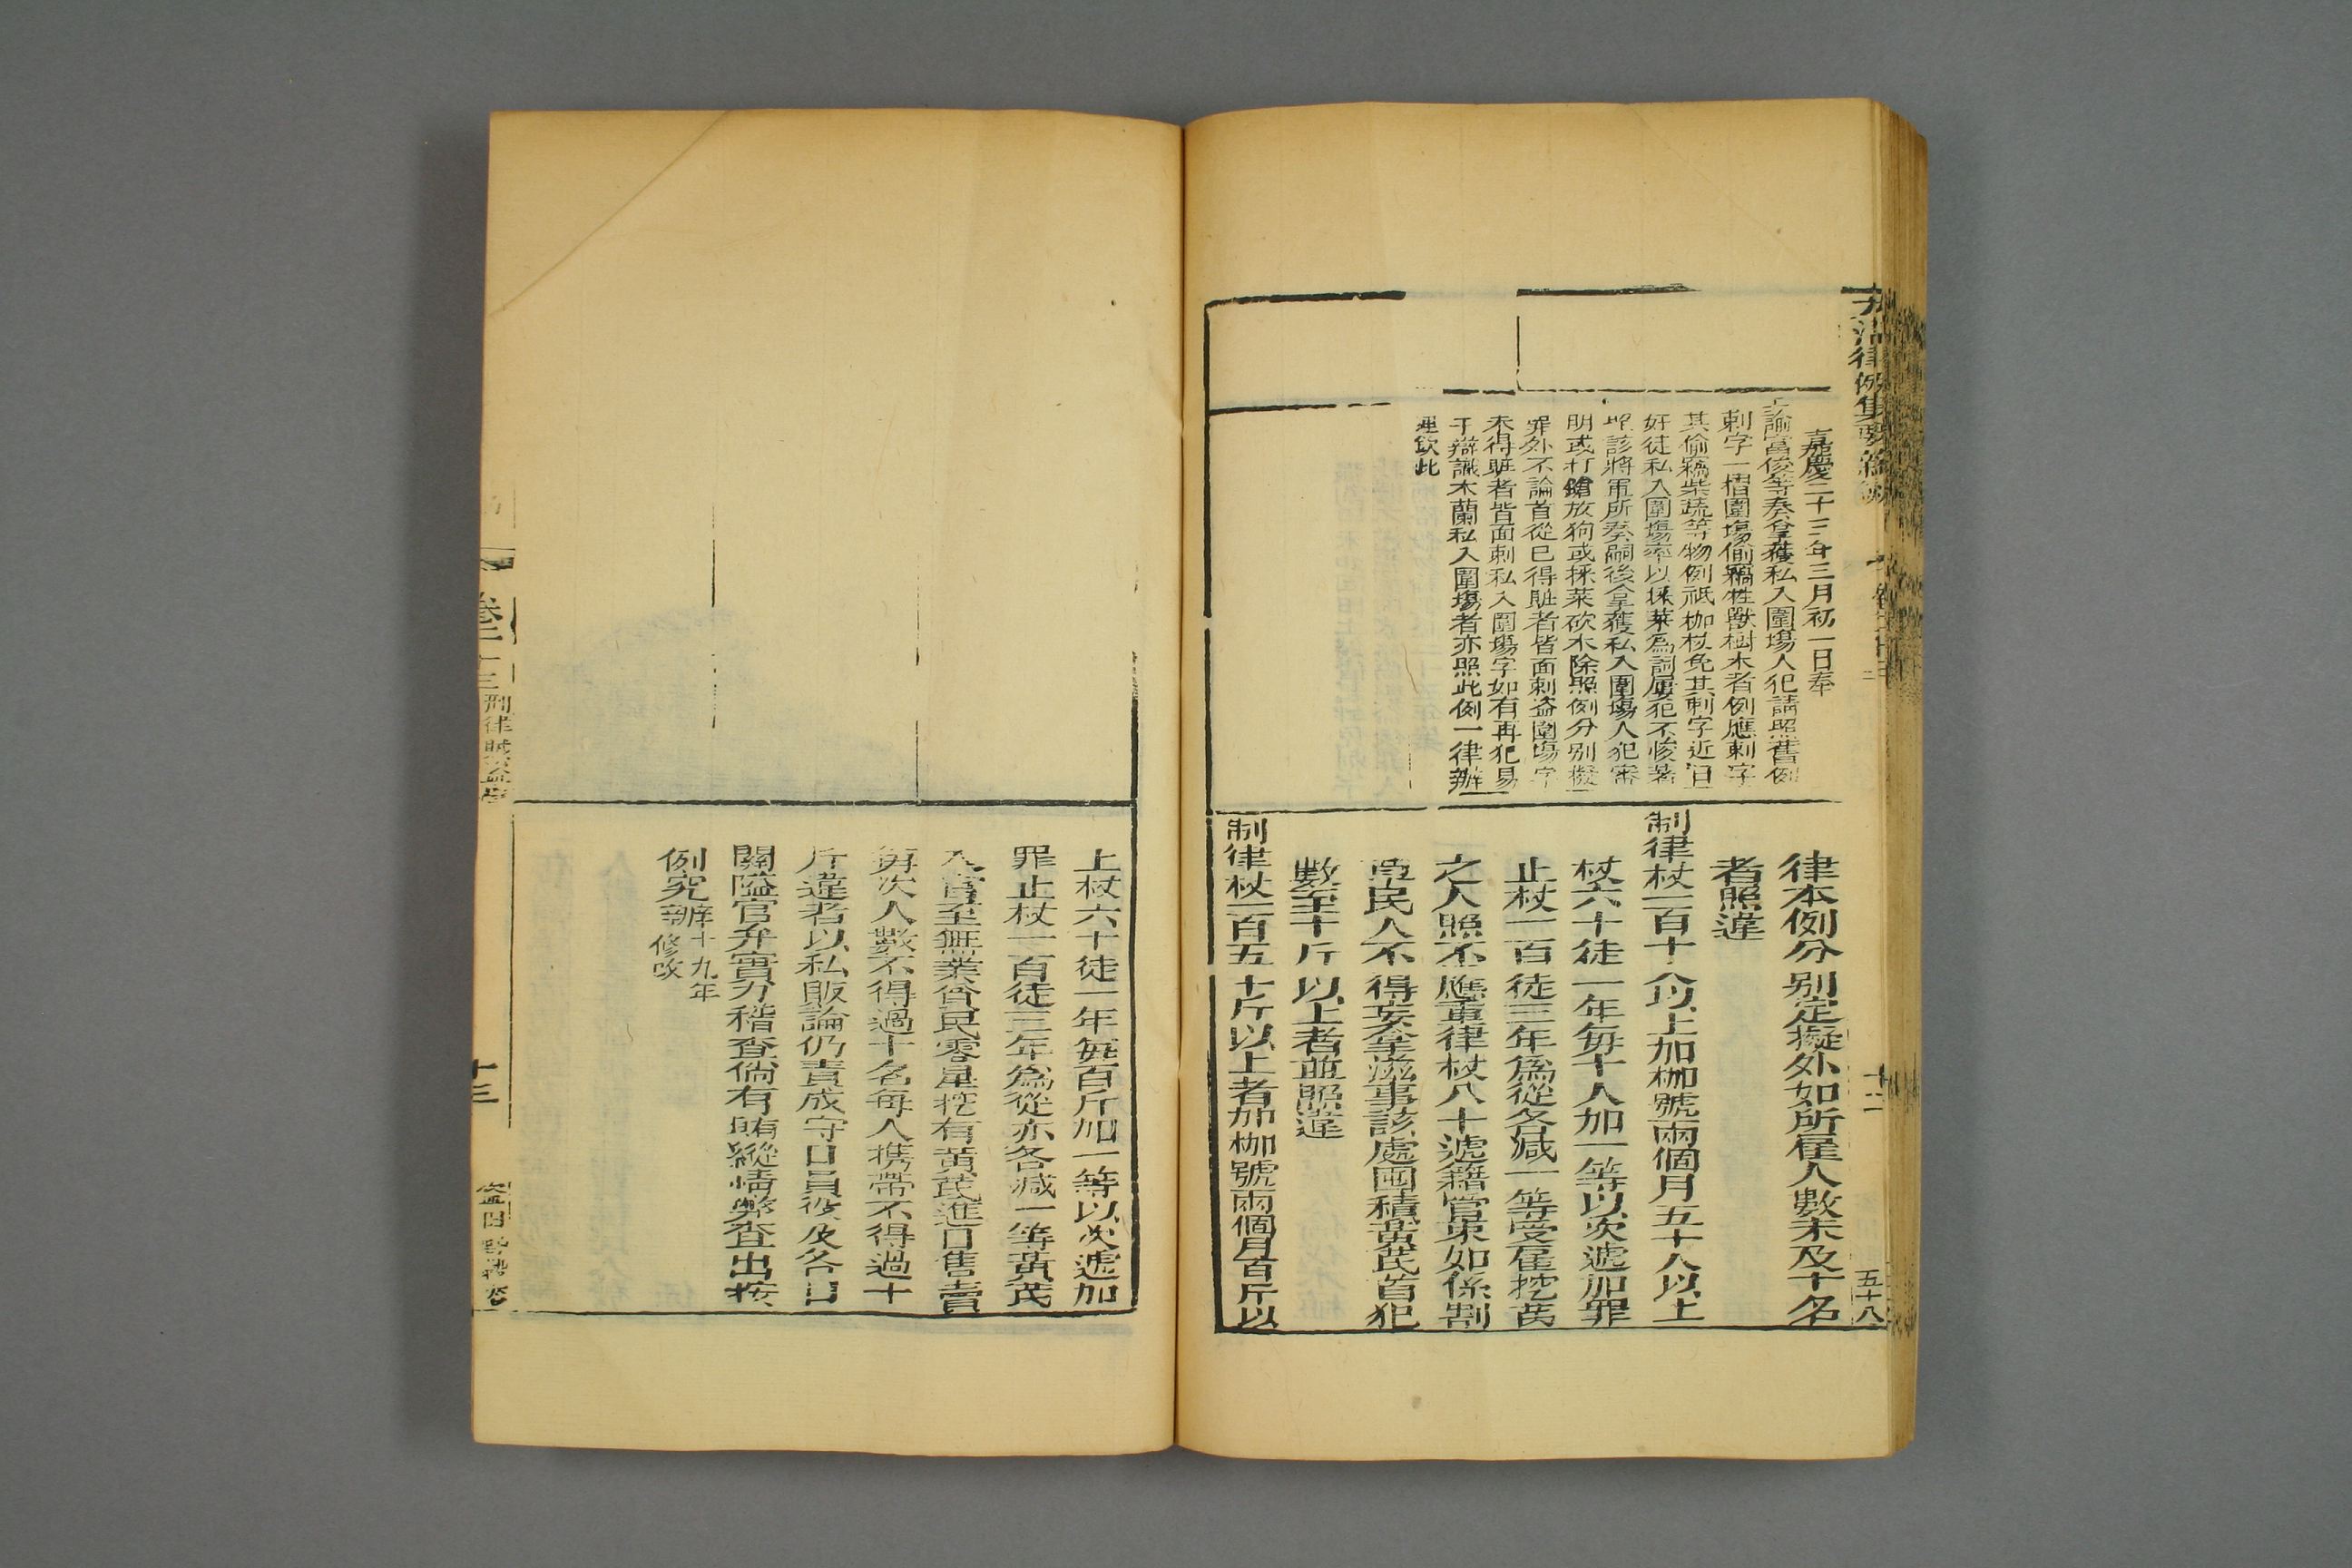 嘉慶二十三年三月初一日奉
上諭富俊等奏拿獲私入圍場人犯請照舊例
刺字一摺圍場偷竊牲獸樹木者例應刺字
其偷竊柴蔬等物例祗枷杖免其刺字近日
奸徒私入圍場率以採菜為詞屢犯不悛著
照該將軍所奏嗣後拿獲私入圍場人犯審
明或打鎗放狗或採菜砍木除照例分別擬
罪外不論首從已得贓者皆面刺盜圍場字
未得贓者皆面刺私入圍場字如有再犯易
于辯識木蘭私入圍場者亦照此例一律辦
理欽此
律本例分別定擬外如所雇人數未及十名
者照違
制律杖一百十人以上加枷號兩個月五十人以上
杖六十徒一年每十人加一等以次遞加罪
止杖一百徒三年為從各減一等受雇挖黃
之人照不應重律杖八十遞籍管束如係割
草民人不得妄拿滋事該處囤積黃芪首犯
數至十斤以上者並照違
制律杖一百五十斤以上者加枷號兩個月百斤以
五十八
上杖六十徒一年每百斤加一等以次遞加
罪止杖一百徒三年為從亦各減一等黃芪
入官至無業貧民零星挖有黃芪進口售賣
每次人數不得過十名每人攜帶不得過十
斤違者以私販論仍責成守口員役及各口
關隘官弁實力稽查倘有賄縱情弊查出按
例究辦十九年
修改
卷二十三 刑律賊盜中
十三
盜田野穀麥